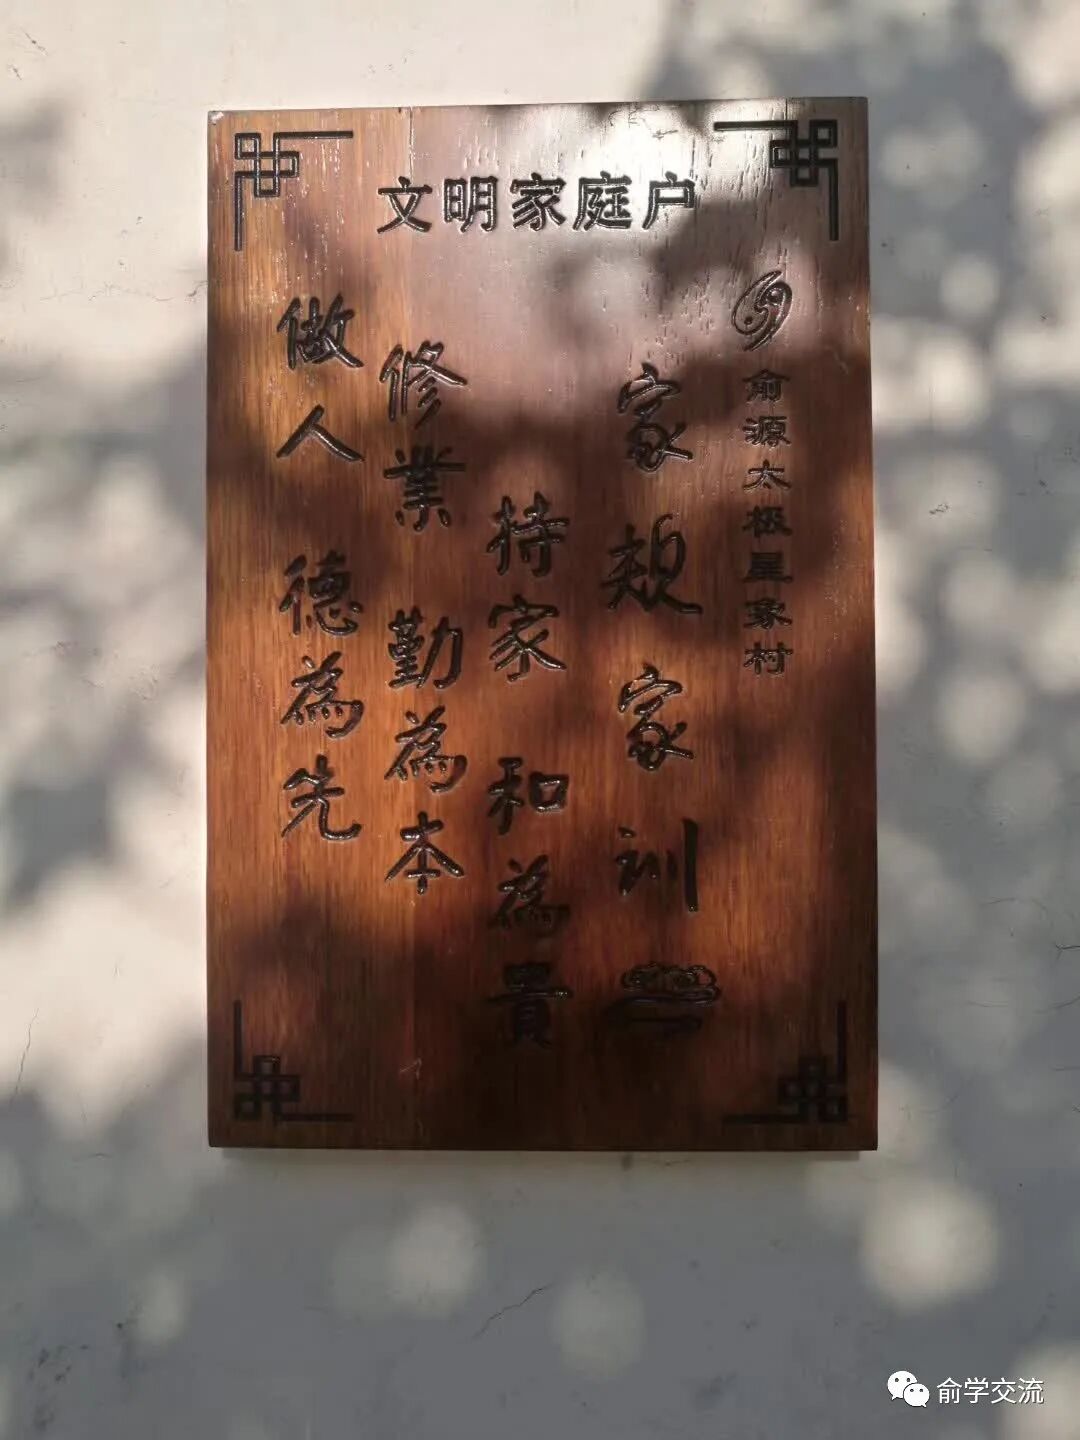 文明家庭户
俞源太极星象村
家规家训
持家 和為貴
修業 勤為本
做人 德為先
俞学交流